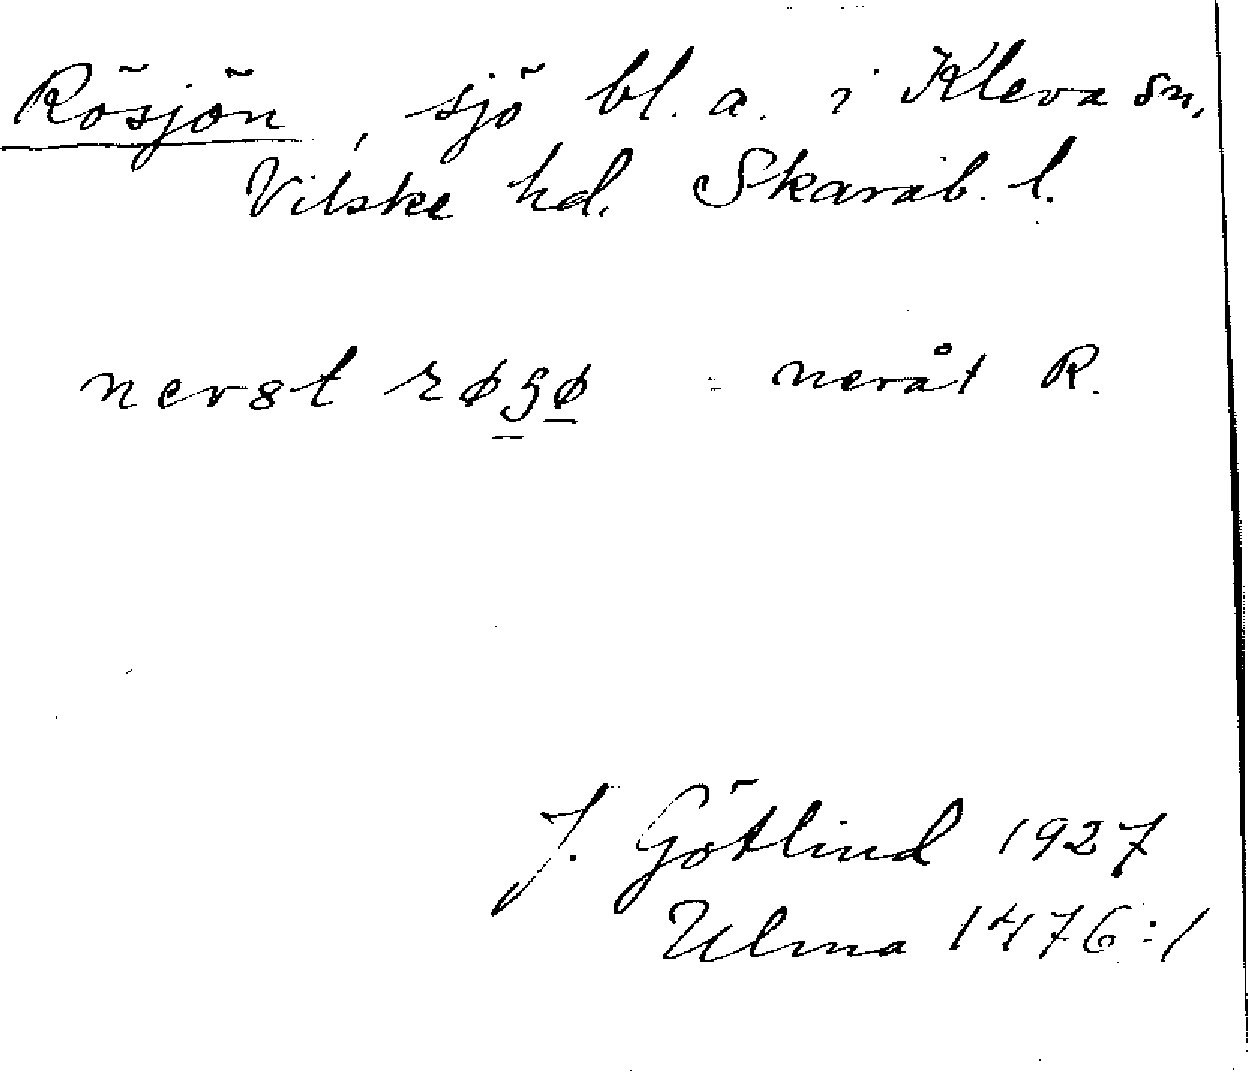 Rösjön, sjö bl. a. i Kleva sn,
Vilske hd. Skarab. l.
nerst røʒø = neråt R.
J. Götlind 1927
Ulma 1476:1